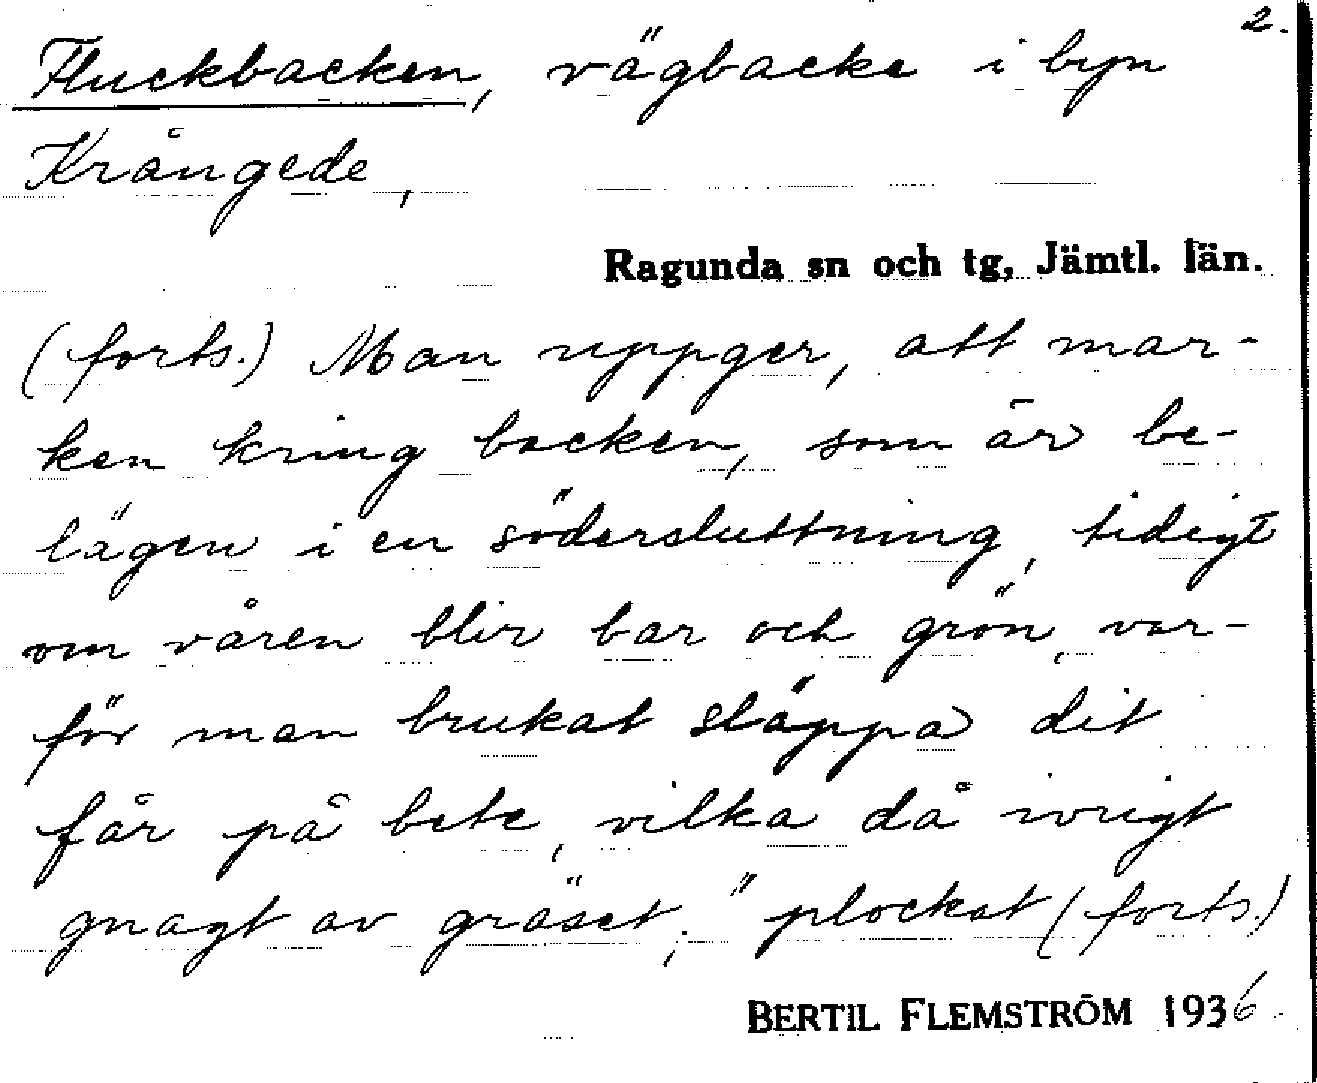 2.
Fluckbacken, vägbacke i byn
Krångede,
Ragunda sn och tg, Jämtl. län.
(forts.) Man uppger, att mar-
ken kring backen, som är be-
lägen i en södersluttning, tidigt
om våren blir bar och grön, var-
för man brukat släppa dit
får på bete, vilka då ivrigt
gnagt av gräset; "plockat (forts.)
BERTIL FLEMSTRÖM 1936